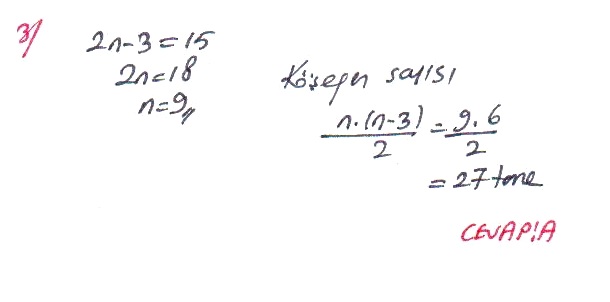 3/ 2n-3=15
2n=18
n=9,,
Köşegen sayısı
n.(n-3)/2 = 9.6/2
= 27 tane
CEVAP:A